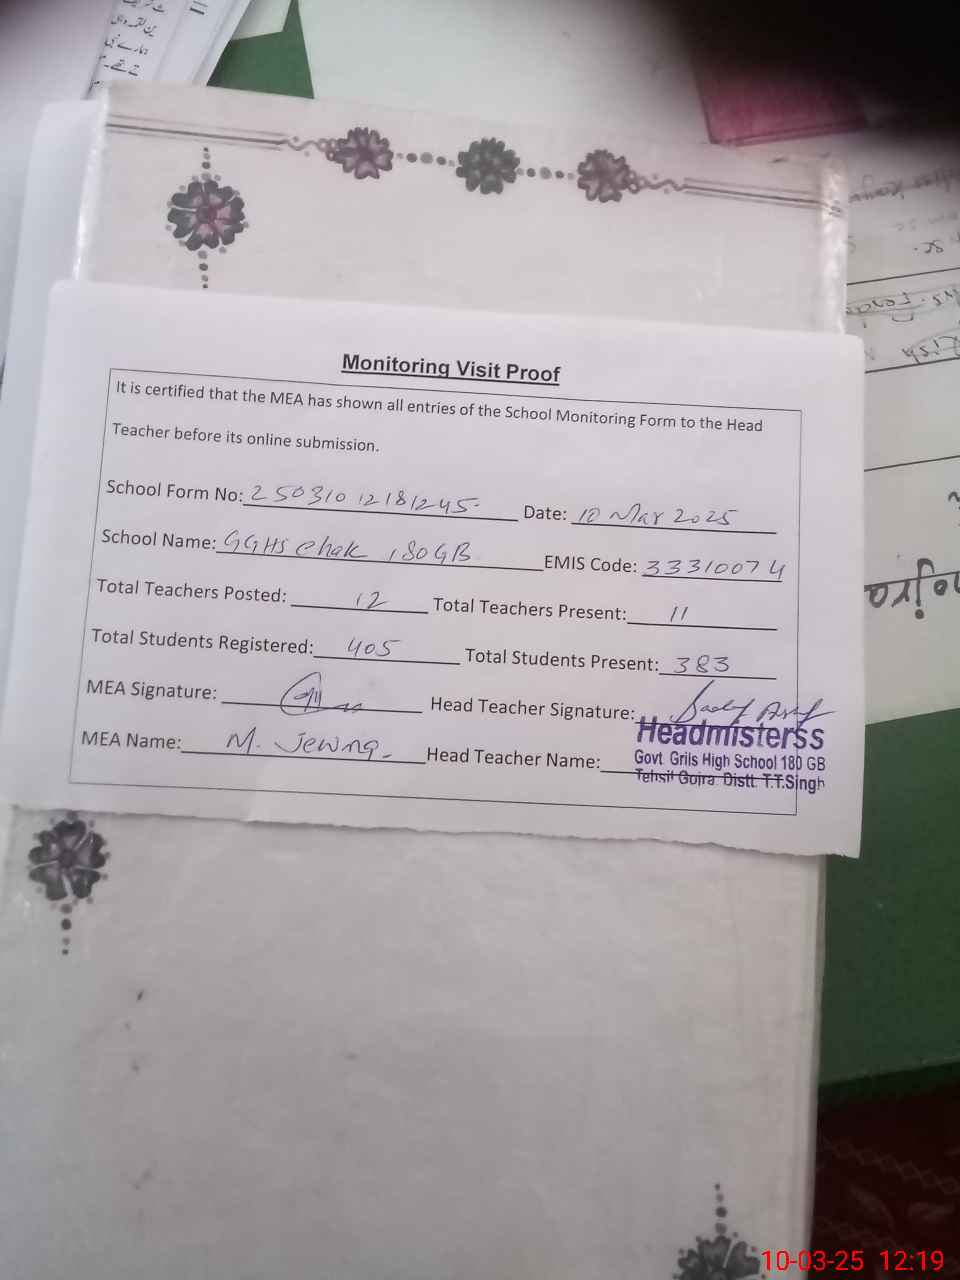 ہمارے نبی
Monitoring Visit Proof
It is certified that the MEA has shown all entries of the School Monitoring Form to the Head
Teacher before its online submission.
School Form No: 25031012181245 Date: 10 Mar 2025
School Name: GGHS Chak 180 GB EMIS Code: 33310074
Total Teachers Posted: 12 Total Teachers Present: 11
Total Students Registered: 405 Total Students Present: 383
MEA Signature: Head Teacher Signature:
MEA Name: M. Head Teacher Name:
Headmisterss
Govt. Grils High School 180 GB
Tehsil Gojra. Distt. T.T.Singh
10-03-25 12:19